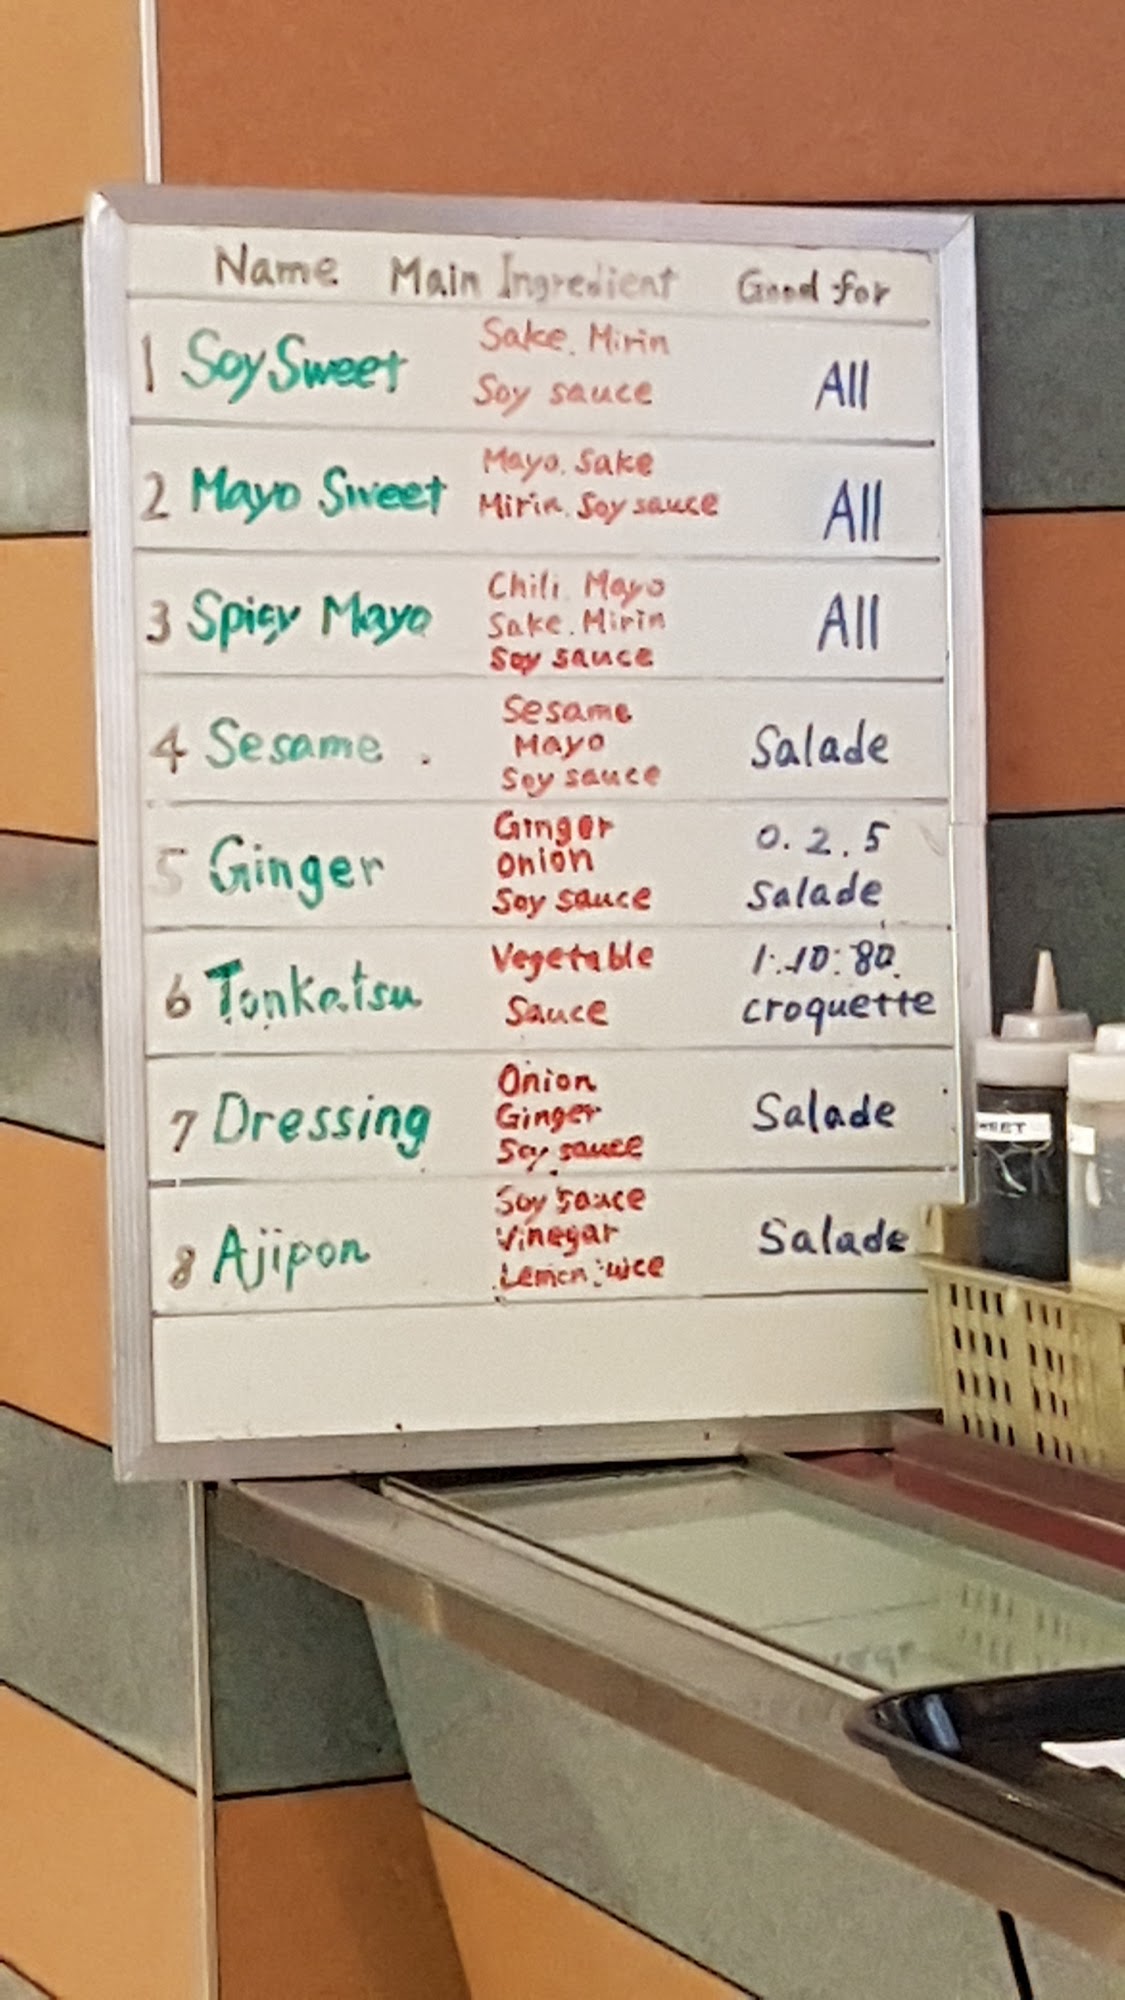 Name Main Ingredient Good for
1 Soy Sweet
Sake. Mirin
Soy sauce
All
2 Mayo Sweet
Mayo. Sake
Mirin. Soy sauce
All
3 Spicy Mayo
Chili. Mayo
Sake. Mirin
Soy sauce
All
4 Sesame
Sesame
Mayo
Soy sauce
Salade
5 Ginger
Ginger
onion
Soy sauce
0. 2. 5
Salade
6 Tonkatsu
Vegetable
Sauce
1. 10. 80.
croquette
7 Dressing
Onion
Ginger
Soy sauce
Salade
8 Ajipon
Soy sauce
Vinegar
Lemon juice
Salade